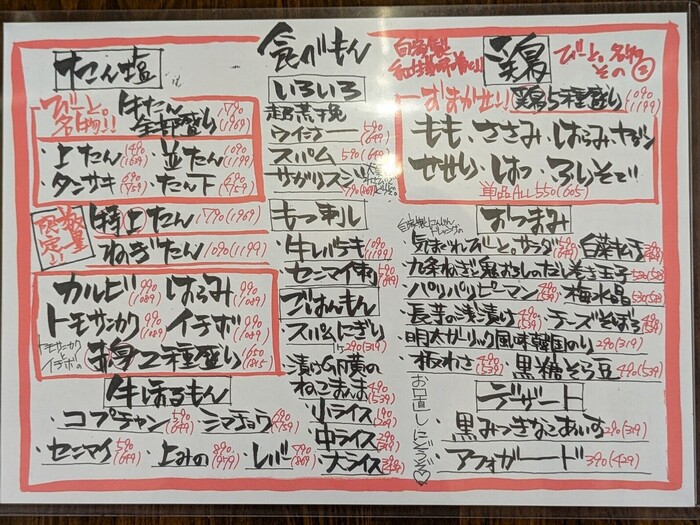 食べもん
たん塩
びーと。名物!!
牛たん全部盛り 1790(1969)
・上たん 1490(1639)
・並たん 1090(1199)
・タンサキ 690(759)
・たん下 690(759)
数量限定!!
特上たん 1790(1969)
ねぎたん 1090(1199)
カルビ 990(1089)
はらみ 990(1089)
トモサンカク 990(1089)
イチボ 990(1089)
トモサンカクとイチボの
赤身2種盛り 1650(1815)
牛ほるもん
・コプチャン 590(649)
・シマチョウ 690(759)
・センマイ 590(649)
・上みの 890(979)
・レバー 790(869)
いろいろ
超荒挽ウィンナー 590(649)
・スパム 590(649)
サガリスジ 790(869)
もつ刺し
・牛レバテキ 1090(1199)
・センマイ刺し
ごはんもん
・スパムにぎり 290(319)
・漬け卵黄のねこまんま 490(539)
・小ライス 190(209)
・中ライス 290(319)
・大ライス
鶏
びーと。名物その②
おまかせ!!鶏5種盛り 1090(1199)
もも、ささみ、はらみ、ヤゲン
せせり、はつ、ふりそで
単品ALL 550(605)
おつまみ
・気まぐれびーと。サラダ 590(649)
・白菜キムチ
・九条ねぎと鬼おろしのだし巻き玉子 530(583)
・パリパリピーマン 490(539)
・梅水晶 530(583)
・長芋の浅漬け 490(539)
・チーズそぼろ 490(539)
・明太ガーリック風味韓国のり 290(319)
・板わさ 490(539)
・黒糖そら豆 490(539)
お口直しにどうぞ♡
デザート
・黒みつきなこあいす 290(319)
・アフォガード 390(429)